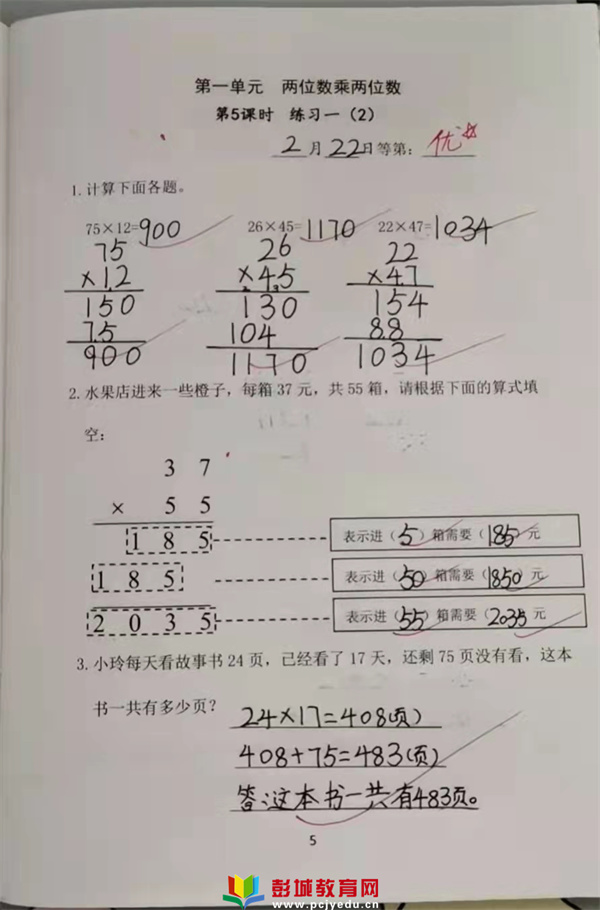 第一单元 两位数乘两位数
第5课时 练习一（2）
2月22日等第：优☆
1.计算下面各题。
75×12=900 26×45=1170 22×47=1034
75 26 22
×12 ×45 ×47
150 130 154
75 104 88
900 1170 1034
2.水果店进来一些橙子，每箱37元，共55箱，请根据下面的算式填
空：
3 7
× 5 5
1 8 5 表示进（5）箱需要（185）元
1 8 5 表示进（50）箱需要（1850）元
2 0 3 5 表示进（55）箱需要（2035元
3.小玲每天看故事书24页，已经看了17天，还剩75页没有看，这本
书一共有多少页？
24×17=408(页)
408+75=483(页)
答:这本书一共有483页。
5
彭城教育网
www.pcjyedu.cn